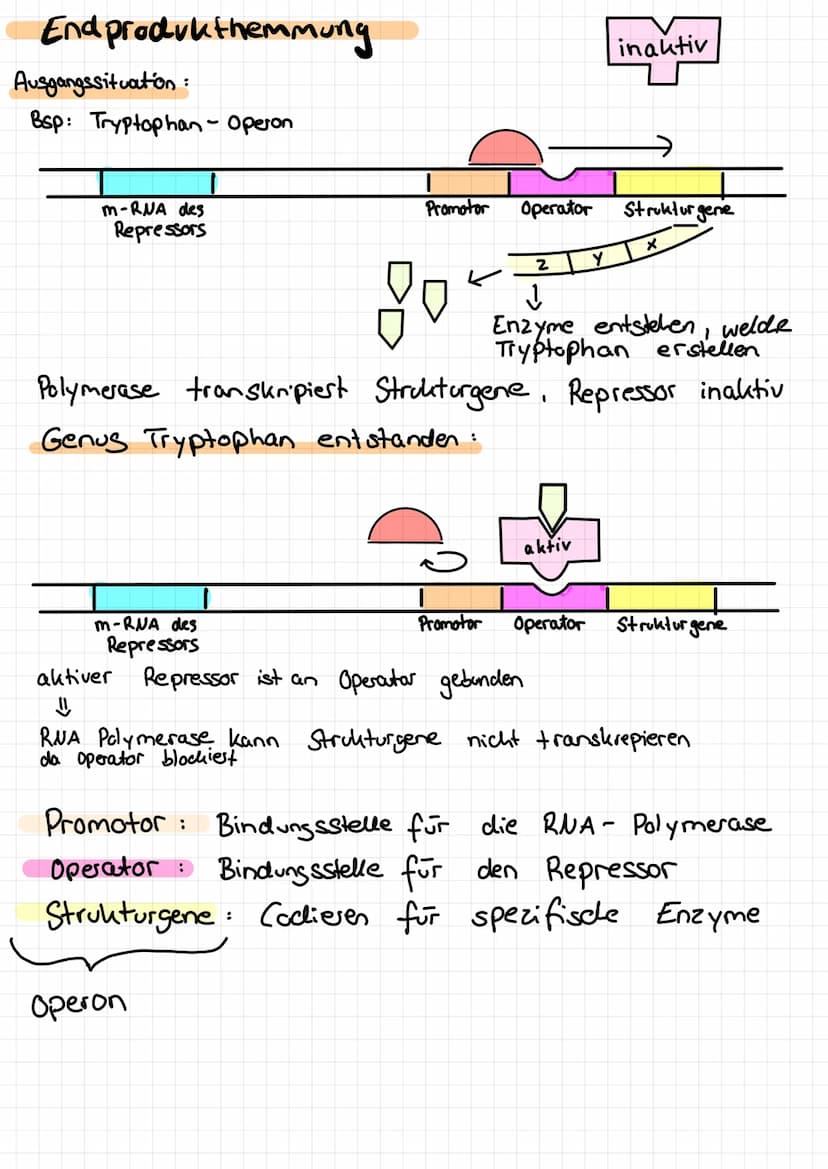 Endprodukthemmung
inaktiv
Ausgangssituation:
Bsp: Tryptophan-Operon
m-RNA des
Repressors
Promotor Operator Strukturgene
Z Y X
Enzyme entstehen, welche
Tryptophan erstellen
Polymerase transkripiert Strukturgene, Repressor inaktiv
Genug Tryptophan entstanden:
aktiv
m-RNA des
Repressors
Promotor Operator Strukturgene
aktiver Repressor ist an Operator gebunden
⇓
RNA Polymerase kann Strukturgene nicht transkrepieren
da Operator blockiert
Promotor: Bindungsstelle für die RNA-Polymerase
Operator: Bindungsstelle für den Repressor
Strukturgene: Codieren für spezifische Enzyme
Operon